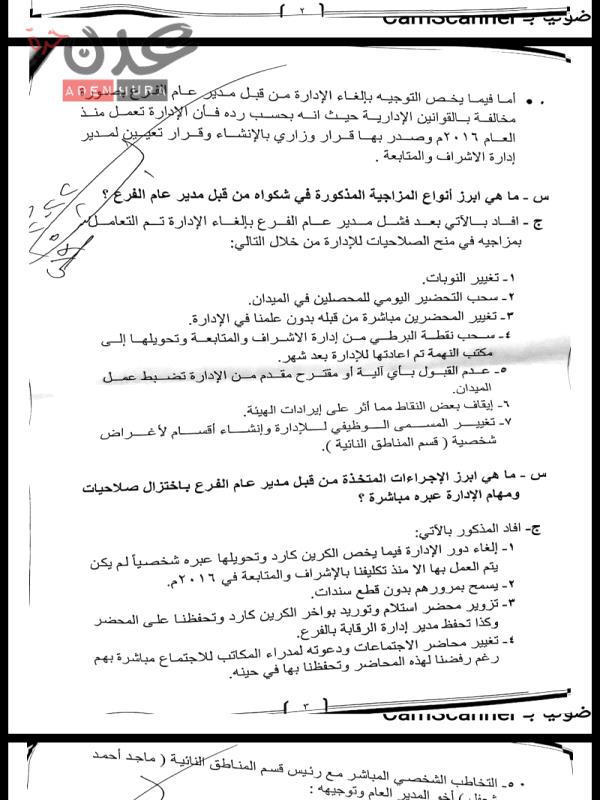 ( ٢ )
ضوئيا بـ CamScanner
عدن حرة
ADEN HURA
• أما فيما يخص التوجيه بإلغاء الإدارة من قبل مدير عام الفرع بصورة
مخالفة بالقوانين الإدارية حيث انه بحسب رده فأن الإدارة تعمل منذ
العام ٢٠١٦م وصدر بها قرار وزاري بالإنشاء وقرار تعيين لمدير
إدارة الاشراف والمتابعة .
س - ما هي ابرز أنواع المزاجية المذكورة في شكواه من قبل مدير عام الفرع ؟
ج - افاد بالآتي بعد فشل مدير عام الفرع بإلغاء الإدارة تم التعامل
بمزاجيه في منح الصلاحيات للإدارة من خلال التالي:
١- تغيير النوبات.
٢- سحب التحضير اليومي للمحصلين في الميدان.
٣- تغيير المحضرين مباشرة من قبله بدون علمنا في الإدارة.
٤- سحب نقطة البرطي من إدارة الاشراف والمتابعة وتحويلها إلى
مكتب النهمة تم اعادتها للإدارة بعد شهر.
٥- عدم القبول بأي آلية أو مقترح مقدم من الإدارة تضبط عمل
الميدان.
٦- إيقاف بعض النقاط مما أثر على إيرادات الهيئة.
٧- تغيير المسمى الوظيفي للإدارة وإنشاء أقسام لأغراض
شخصية ( قسم المناطق النائية ).
س - ما هي ابرز الإجراءات المتخذة من قبل مدير عام الفرع باختزال صلاحيات
ومهام الإدارة عبره مباشرة ؟
ج- افاد المذكور بالآتي:
١- إلغاء دور الإدارة فيما يخص الكرين كارد وتحويلها عبره شخصياً لم يكن
يتم العمل بها الا منذ تكليفنا بالإشراف والمتابعة في ٢٠١٦م.
٢- يسمح بمرورهم بدون قطع سندات.
٣- تزوير محضر استلام وتوريد بواخر الكرين كارد وتحفظنا على المحضر
وكذا تحفظ مدير إدارة الرقابة بالفرع.
٤- تغيير محاضر الاجتماعات ودعوته لمدراء المكاتب للاجتماع مباشرة بهم
رغم رفضنا لهذه المحاضر وتحفظنا بها في حينه.
( ٣ )
ضوئيا بـ CamScanner
٥- التخاطب الشخصي المباشر مع رئيس قسم المناطق النائية ( ماجد أحمد
) أخو المدير العام وتوجيهه :